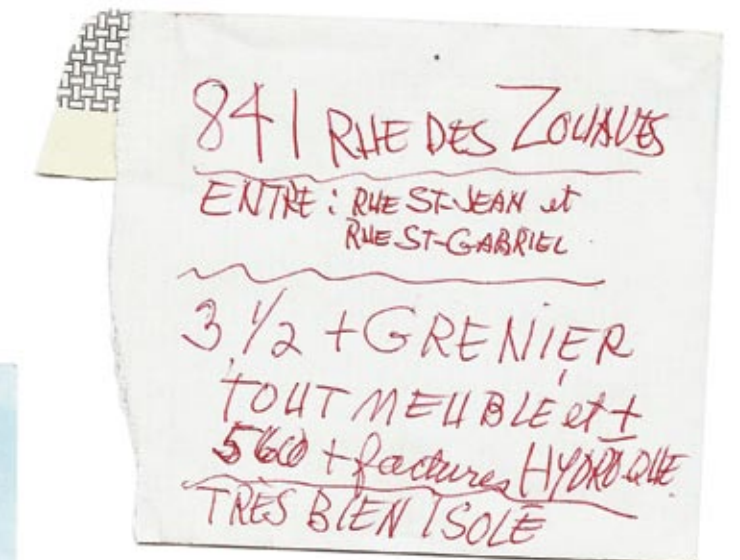 841 RUE DES ZOUAVES
ENTRE : RUE ST-JEAN et
RUE ST-GABRIEL
3 1/2 + GRENIER
TOUT MEUBLÉ et ±
560 + factures HYDRO-QUE
TRÈS BIEN ISOLÉ